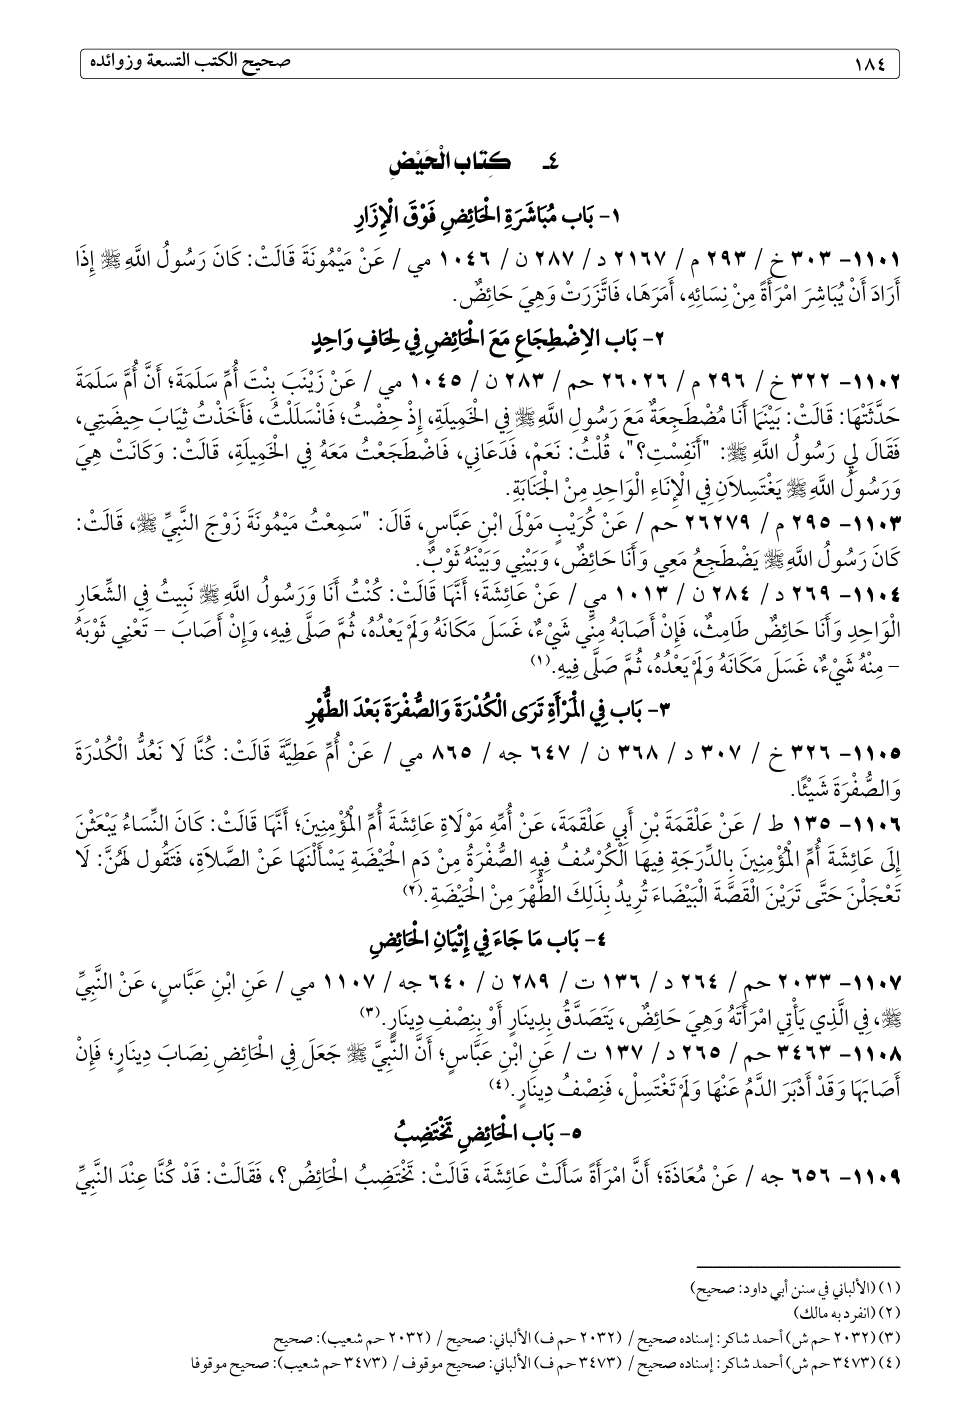 ١٨٤
صحيح الكتب التسعة وزوائده
٤ـ كِتَاب الْحَيْضِ
١- بَاب مُبَاشَرَةِ الْحَائِضِ فَوْقَ الْإِزَارِ
١١٠١- ٣٠٣ خ / ٢٩٣ م / ٢١٦٧ د / ٢٨٧ ن / ١٠٤٦ مي / عَنْ مَيْمُونَةَ قَالَتْ: كَانَ رَسُولُ اللَّهِ ﷺ إِذَا
أَرَادَ أَنْ يُبَاشِرَ امْرَأَةً مِنْ نِسَائِهِ، أَمَرَهَا، فَاتَّزَرَتْ وَهِيَ حَائِضٌ.
٢- بَاب الِاضْطِجَاعِ مَعَ الْحَائِضِ فِي لِحَافٍ وَاحِدٍ
١١٠٢- ٣٢٢ خ / ٢٩٦ م / ٢٦٠٢٦ حم / ٢٨٣ ن / ١٠٤٥ مي / عَنْ زَيْنَبَ بِنْتَ أُمِّ سَلَمَةَ؛ أَنَّ أُمَّ سَلَمَةَ
حَدَّثَتْهَا: قَالَتْ: بَيْنَمَا أَنَا مُضْطَجِعَةٌ مَعَ رَسُولِ اللَّهِ ﷺ فِي الْخَمِيلَةِ، إِذْ حِضْتُ؛ فَانْسَلَلْتُ، فَأَخَذْتُ ثِيَابَ حِيضَتِي،
فَقَالَ لِي رَسُولُ اللَّهِ ﷺ: "أَنَفِسْتِ؟"، قُلْتُ: نَعَمْ، فَدَعَانِي، فَاضْطَجَعْتُ مَعَهُ فِي الْخَمِيلَةِ، قَالَتْ: وَكَانَتْ هِيَ
وَرَسُولُ اللَّهِ ﷺ يَغْتَسِلَانِ فِي الْإِنَاءِ الْوَاحِدِ مِنْ الْجَنَابَةِ.
١١٠٣- ٢٩٥ م / ٢٦٢٧٩ حم / عَنْ كُرَيْبٍ مَوْلَى ابْنِ عَبَّاسٍ، قَالَ: "سَمِعْتُ مَيْمُونَةَ زَوْجَ النَّبِيِّ ﷺ، قَالَتْ:
كَانَ رَسُولُ اللَّهِ ﷺ يَضْطَجِعُ مَعِي وَأَنَا حَائِضٌ، وَبَيْنِي وَبَيْنَهُ ثَوْبٌ.
١١٠٤- ٢٦٩ د / ٢٨٤ ن / ١٠١٣ مي / عَنْ عَائِشَةَ؛ أَنَّهَا قَالَتْ: كُنْتُ أَنَا وَرَسُولُ اللَّهِ ﷺ نَبِيتُ فِي الشِّعَارِ
الْوَاحِدِ وَأَنَا حَائِضٌ طَامِثٌ، فَإِنْ أَصَابَهُ مِنِّي شَيْءٌ، غَسَلَ مَكَانَهُ وَلَمْ يَعْدُهُ، ثُمَّ صَلَّى فِيهِ، وَإِنْ أَصَابَ – تَعْنِي ثَوْبَهُ
– مِنْهُ شَيْءٌ، غَسَلَ مَكَانَهُ وَلَمْ يَعْدُهُ، ثُمَّ صَلَّى فِيهِ.(١)
٣- بَاب فِي الْمَرْأَةِ تَرَى الْكُدْرَةَ وَالصُّفْرَةَ بَعْدَ الطُّهْرِ
١١٠٥- ٣٢٦ خ / ٣٠٧ د / ٣٦٨ ن / ٦٤٧ جه / ٨٦٥ مي / عَنْ أُمِّ عَطِيَّةَ قَالَتْ: كُنَّا لَا نَعُدُّ الْكُدْرَةَ
وَالصُّفْرَةَ شَيْئًا.
١١٠٦- ١٣٥ ط / عَنْ عَلْقَمَةَ بْنِ أَبِي عَلْقَمَةَ، عَنْ أُمِّهِ مَوْلَاةِ عَائِشَةَ أُمِّ الْمُؤْمِنِينَ؛ أَنَّهَا قَالَتْ: كَانَ النِّسَاءُ يَبْعَثْنَ
إِلَى عَائِشَةَ أُمِّ الْمُؤْمِنِينَ بِالدِّرَجَةِ فِيهَا الْكُرْسُفُ فِيهِ الصُّفْرَةُ مِنْ دَمِ الْحَيْضَةِ يَسْأَلْنَهَا عَنْ الصَّلَاةِ، فَتَقُول لَهُنَّ: لَا
تَعْجَلْنَ حَتَّى تَرَيْنَ الْقَصَّةَ الْبَيْضَاءَ تُرِيدُ بِذَلِكَ الطُّهْرَ مِنْ الْحَيْضَةِ.(٢)
٤- بَاب مَا جَاءَ فِي إِتْيَانِ الْحَائِضِ
١١٠٧- ٢٠٣٣ حم / ٢٦٤ د / ١٣٦ ت / ٢٨٩ ن / ٦٤٠ جه / ١١٠٧ مي / عَنِ ابْنِ عَبَّاسٍ، عَنْ النَّبِيِّ
ﷺ، فِي الَّذِي يَأْتِي امْرَأَتَهُ وَهِيَ حَائِضٌ، يَتَصَدَّقُ بِدِينَارٍ أَوْ بِنِصْفِ دِينَارٍ.(٣)
١١٠٨- ٣٤٦٣ حم / ٢٦٥ د / ١٣٧ ت / عَنِ ابْنِ عَبَّاسٍ؛ أَنَّ النَّبِيَّ ﷺ جَعَلَ فِي الْحَائِضِ نِصَابَ دِينَارٍ؛ فَإِنْ
أَصَابَهَا وَقَدْ أَدْبَرَ الدَّمُ عَنْهَا وَلَمْ تَغْتَسِلْ، فَنِصْفُ دِينَارٍ.(٤)
٥- بَاب الْحَائِضِ تَخْتَضِبُ
١١٠٩- ٦٥٦ جه / عَنْ مُعَاذَةَ؛ أَنَّ امْرَأَةً سَأَلَتْ عَائِشَةَ، قَالَتْ: تَخْتَضِبُ الْحَائِضُ؟، فَقَالَتْ: قَدْ كُنَّا عِنْدَ النَّبِيِّ
(١) (الألباني في سنن أبي داود: صحيح)
(٢) (انفرد به مالك)
(٣) (٢٠٣٢ حم ش) أحمد شاكر: إسناده صحيح / (٢٠٣٢ حم ف) الألباني: صحيح / (٢٠٣٢ حم شعيب): صحيح
(٤) (٣٤٧٣ حم ش) أحمد شاكر: إسناده صحيح / (٣٤٧٣ حم ف) الألباني: صحيح موقوف / (٣٤٧٣ حم شعيب): صحيح موقوفا